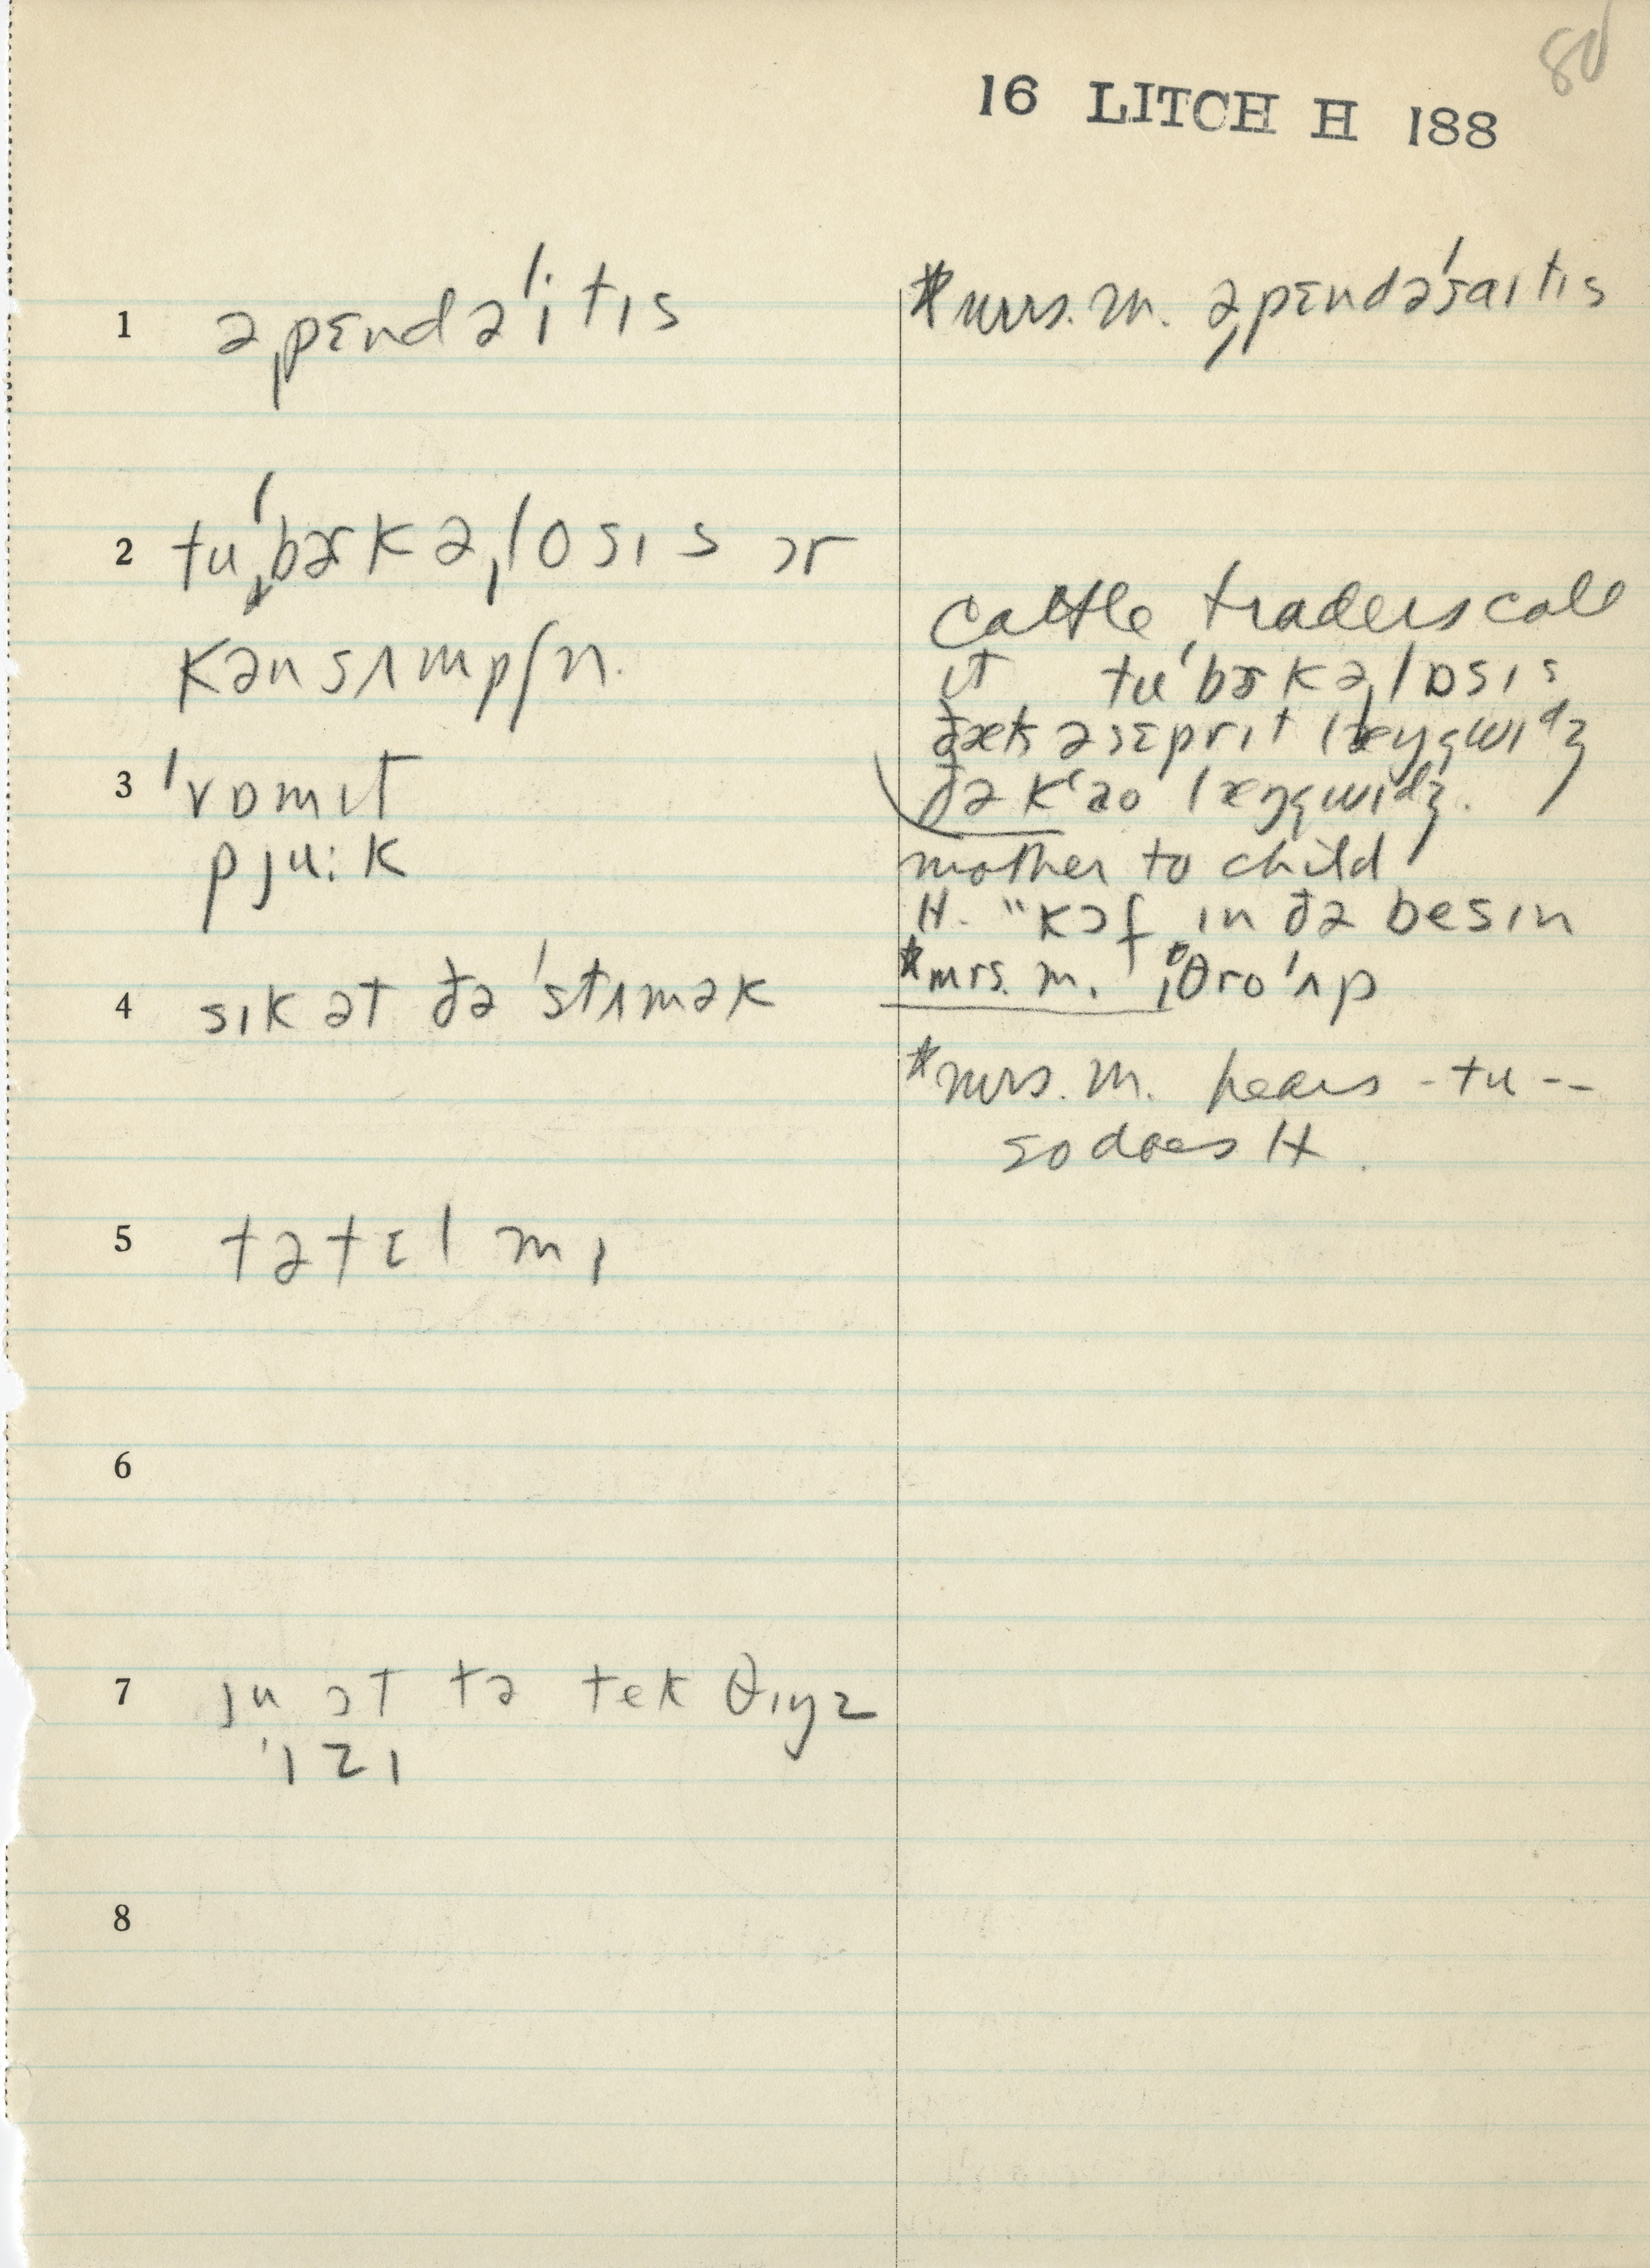 80
16 LITCH H 188
1 əˌpɛndəˈitɪs
*Mrs. M. əˌpɛndəˈsaɪtɪs
2 tuˈbɚkəˌlosɪs ɔr
kənsʌmpʃn.
Cattle traders call
it tuˈbɚkəˌlɒsɪs
ðæts ə sɛprɪt læŋgwɪdʒ
ðə kʻao læŋgwɪdʒ.
3 ˈvɒmɪt
pjuːk
mother to child
H. "kɔf ɪn ðə besɪn
*Mrs. M. θro ˈʌp
4 sɪk ət ðə ˈstʌmək
*Mrs. M. hears - tu --
so does H.
5 tə tɛl mɪ
6
7 ju ɔt tə tek θɪŋz
ˈizɪ
8